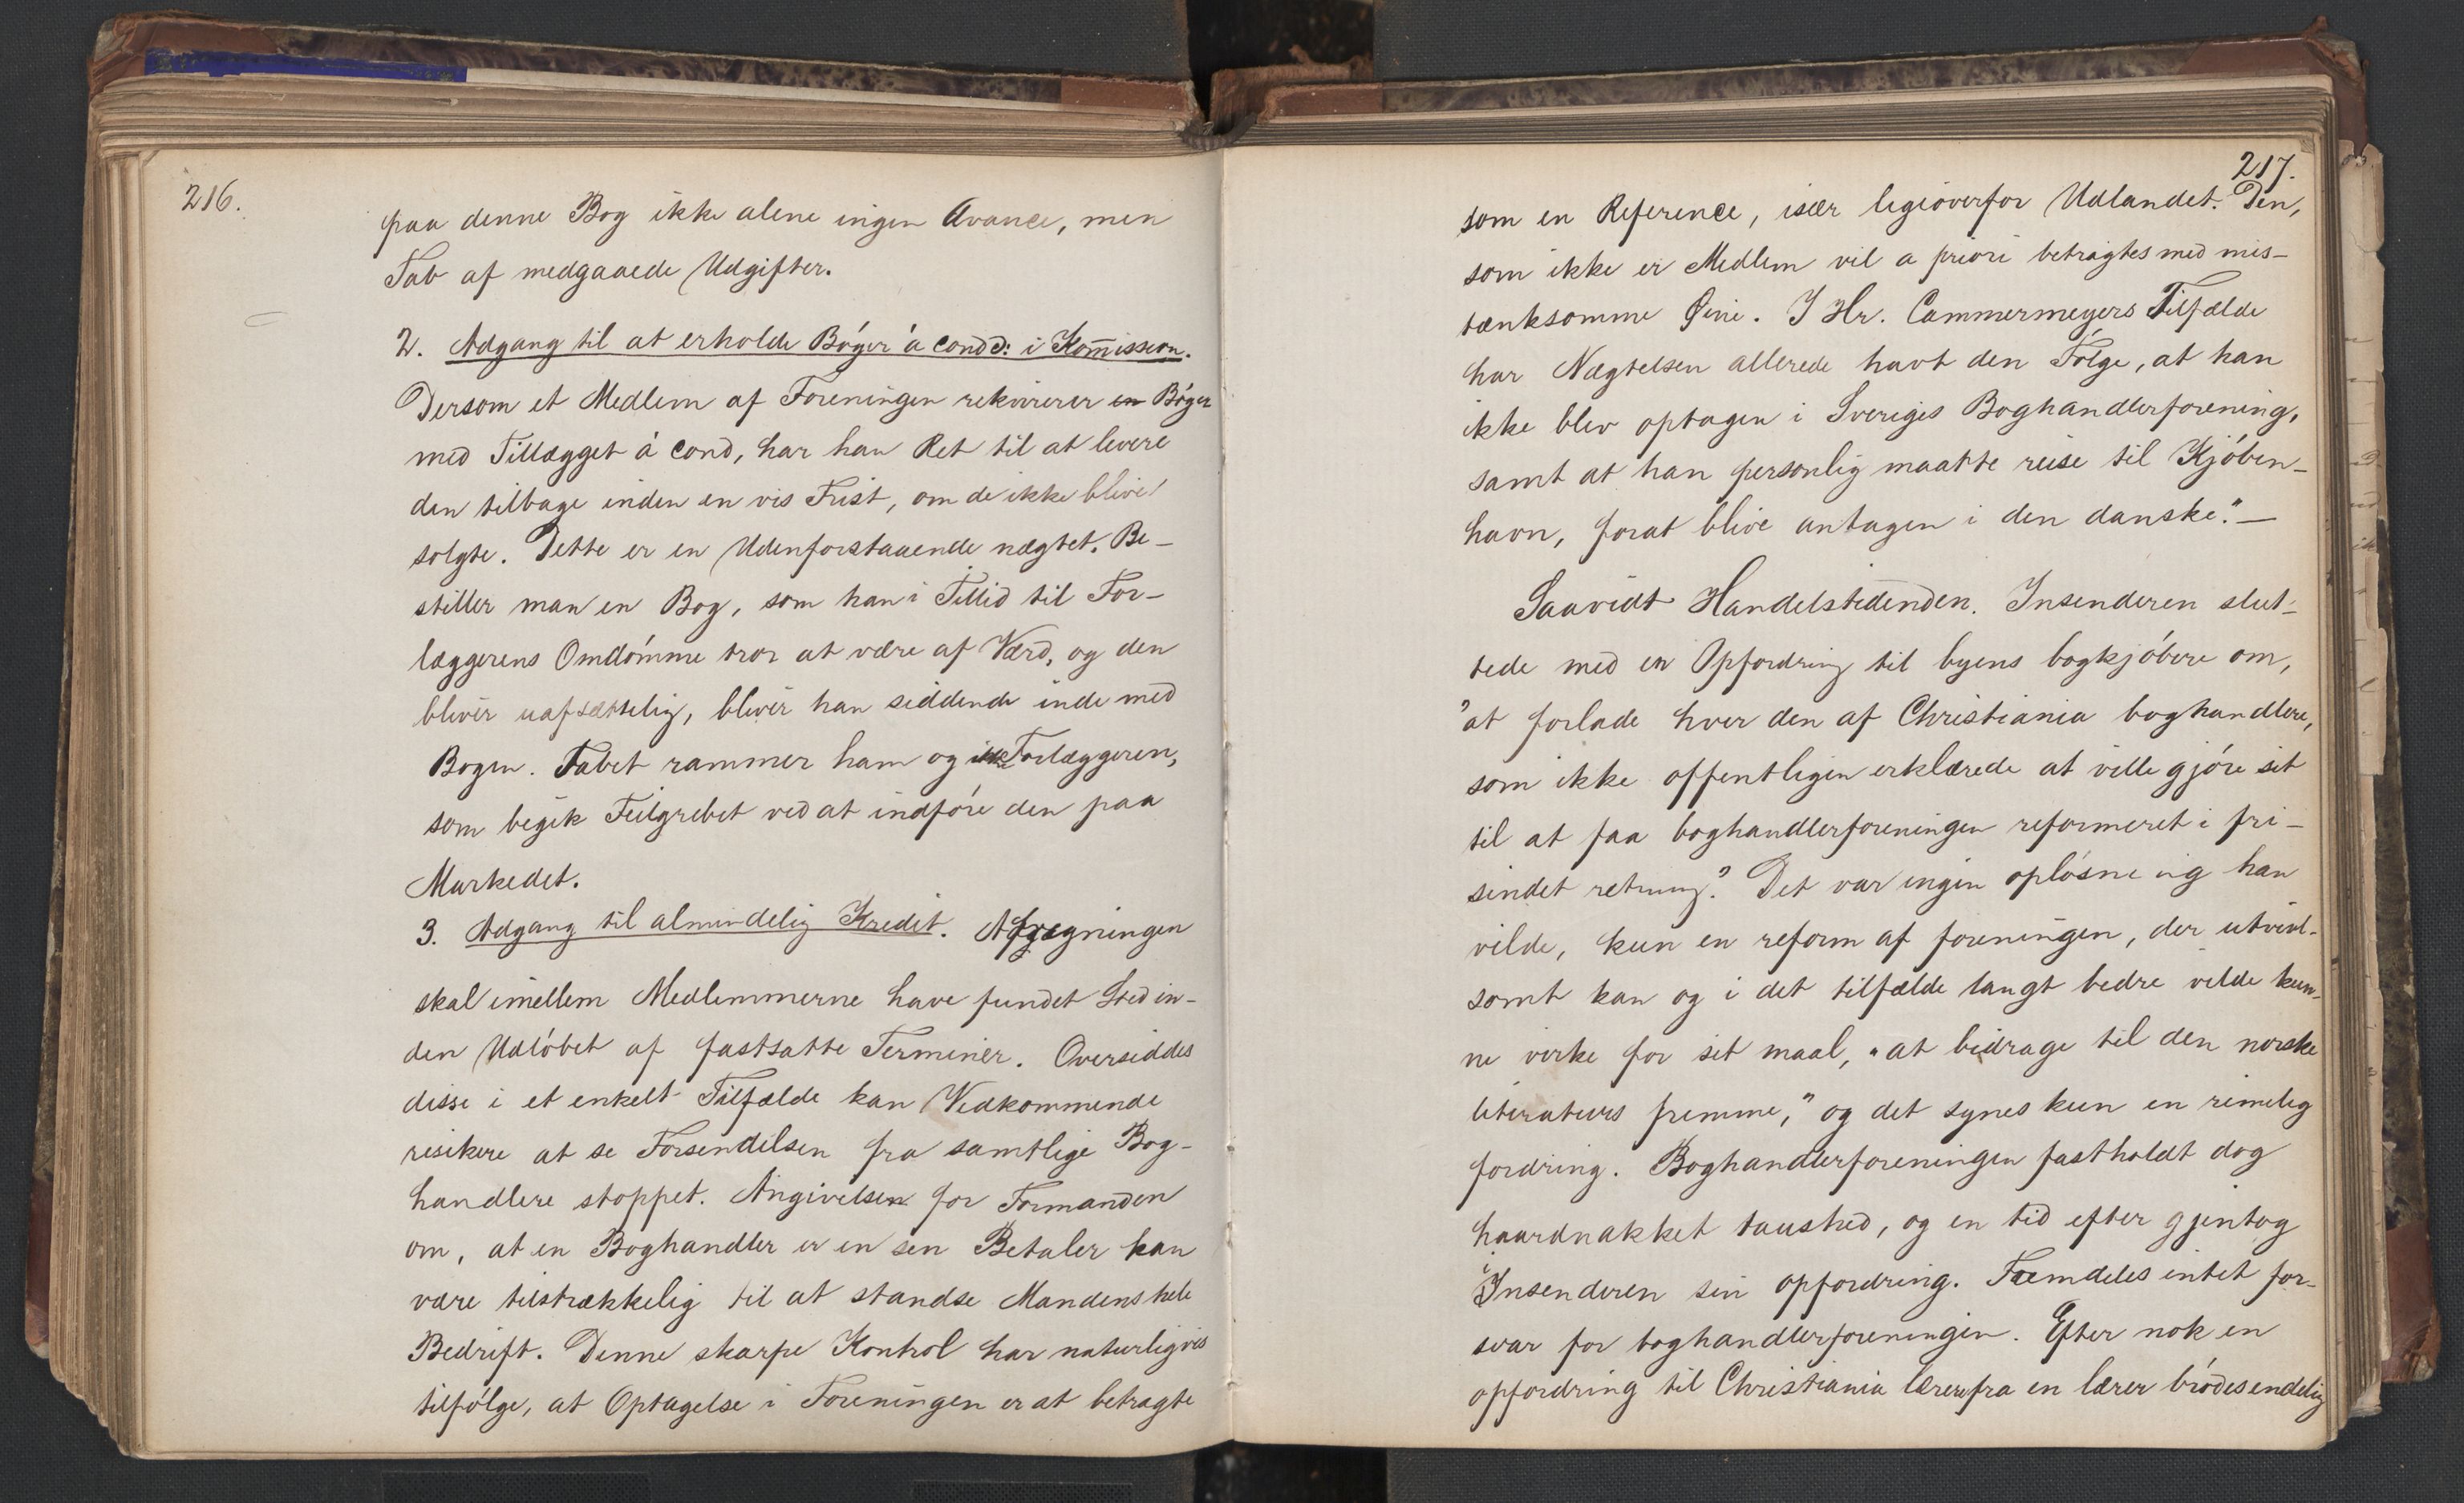 216.
paa denne Bog ikke alene ingen Avance, men
Tab af medgaaede Udgifter.
2. Adgang til at erholde Bóger à cond ɔ: i Kom̅ission.
Dersom et Medlem af Foreningen rekvirerer en Bóger
med Tillægget à cond, har han Ret til at levere
den tilbage inden en vis Frist, om de ikke blive
solgte. Dette er en Udenforstaaende nægtet. Be-
stiller man en Bog, som han i Tillid til For-
læggerens Omdómme tror at være af Værd, og den
bliver uafsættelig, bliver han siddende inde med
Bogen. Tabet rammer ham og ikke Forlæggeren,
som begik Feilgrebet ved at indfóre den paa
Markedet.
3. Adgang til almindelig Kredit. Afregningen
skal imellem Medlemmerne have fundet Sted in-
den Udlóbet af fastsatte Terminer. Oversiddes
disse i et enkelt Tilfælde kan Vedkommende
risikere at se Forsendelsen fra samtlige Bog-
handlere stoppet. Angivelsen for Formanden
om, at en Boghandler er en sen Betaler kan
være tilstrækkelig til at standse Mandens hele
Bedrift. Denne skarpe Kontrol har naturligvis
tilfólge, at Optagelse i Foreningen er at betragte
217.
som en Reference, især ligeoverfor Udlandet. Den,
som ikke er Medlem vil a priori betragtes med mis-
tænksomme Øine. I Hr. Cammermeyers Tilfælde
har Nægtelsen allerede havt den Fólge, at han
ikke blev optagen i Sveriges Boghandlerforening,
samt at han personlig maatte reise til Kjóben-
havn, forat blive antagen i den danske." —
Saavidt Handelstidenden. Insenderen slut-
tede med en Opfordring til byens bogkjóbere om,
"at forlade hver den af Christiania boghandlere,
som ikke offentligen erklærede at ville gjóre sit
til at faa boghandlerforeningen reformeret i fri-
sindet retning." Det var ingen oplósning han
vilde, kun en reform af foreningen, der utvivl-
somt kan og i det tilfælde langt bedre vilde kun-
ne virke for sit maal, "at bidrage til den norske
literaturs fremme," og det synes kun en rimelig
fordring. Boghandlerforeningen fastholdt dog
haardnakket taushed, og en tid efter gjentog
Insenderen sin opfordring. Fremdeles intet for-
svar for boghandlerforeningen. Efter nok en
opfordring til Christiania lærere fra en lærer bródes endelig